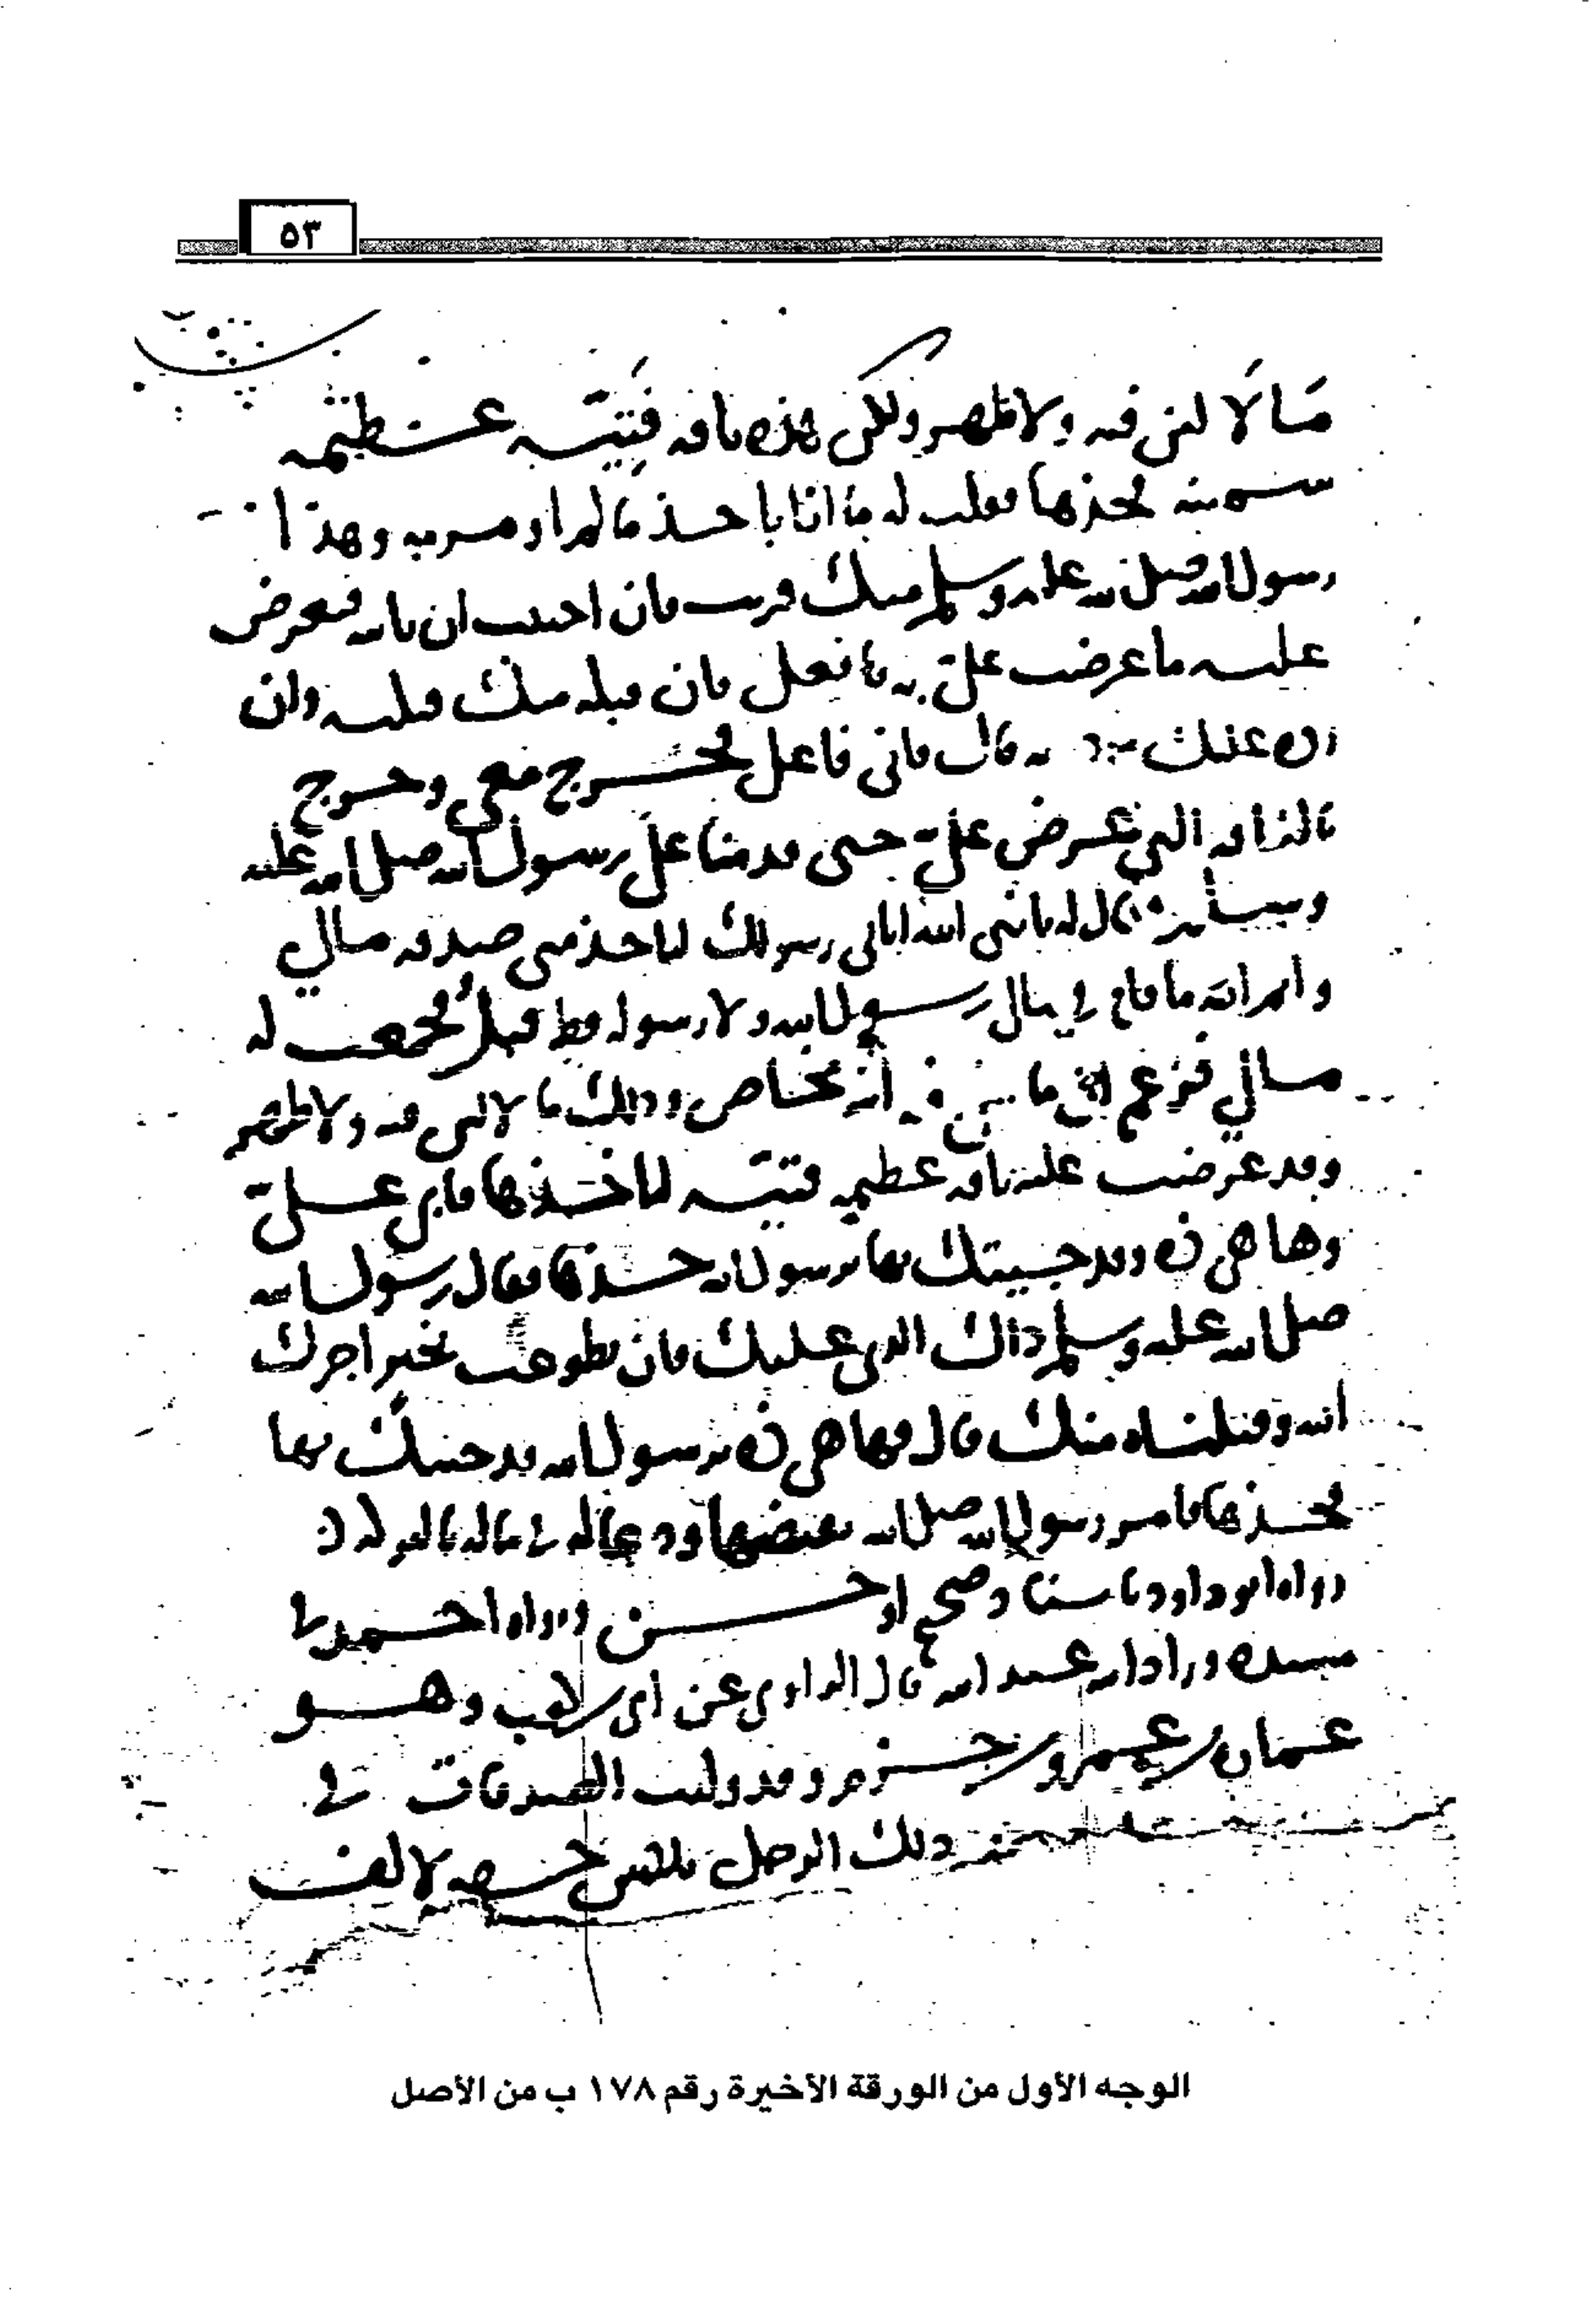 ٥٣
مَا لَا لبن فيه ولا ظهر ولكن هذه ناقه فَتِيَّه عظيمه
سمينه فخذها فقلت له ما انا باخذ ما لم اومر به وهذا
رسول الله صلى الله عليه وسلم منك قريب فان احببت ان تاتيه فتعرض
عليه ما عرضت علي فافعل فان قبله منك قبلته وان
رده عليك رده قال فاني فاعل فخرج معي وخرج
بالناقه التي عرض علي حتى قدمنا على رسول الله صلى الله عليه
وسلم فقال له يا نبي الله اتاني رسولك لياخذ مني صدقه مالي
وايم الله ما قام في مالي رسول الله ولا رسوله قط قبله فجمعت له
مالي فزعم ان ما علي فيه ابنة مخاض وذلك ما لا لبن فيه ولا ظهر
وقد عرضت عليه ناقه عظيمه فتيّه لياخذها فابى علي
وها هي ذه وقد جيتك بها يرسول الله خذها فقال رسول الله
صلى الله عليه وسلم ذاك الذي عليك فان تطوعت بخير اجرك
الله وقبلناه منك قال فها هي ذه يرسول الله قد جيتك بها
فخذها فامر رسول الله صلى الله بقبضها ودعا له في ماله بالبركة
رواه ابو داود باسناد صحيح او حسن ورواه احمد في
مسنده وزاد ابنه عبد الله قال الراوي عن ابي بن كعب وهو
عمارة بن عمرو بن حزم وقد وليت الصدقات في
ذلك الرجل ثلثين حقه لالف
الوجه الأول من الورقة الأخيرة رقم ١٧٨ ب من الأصل